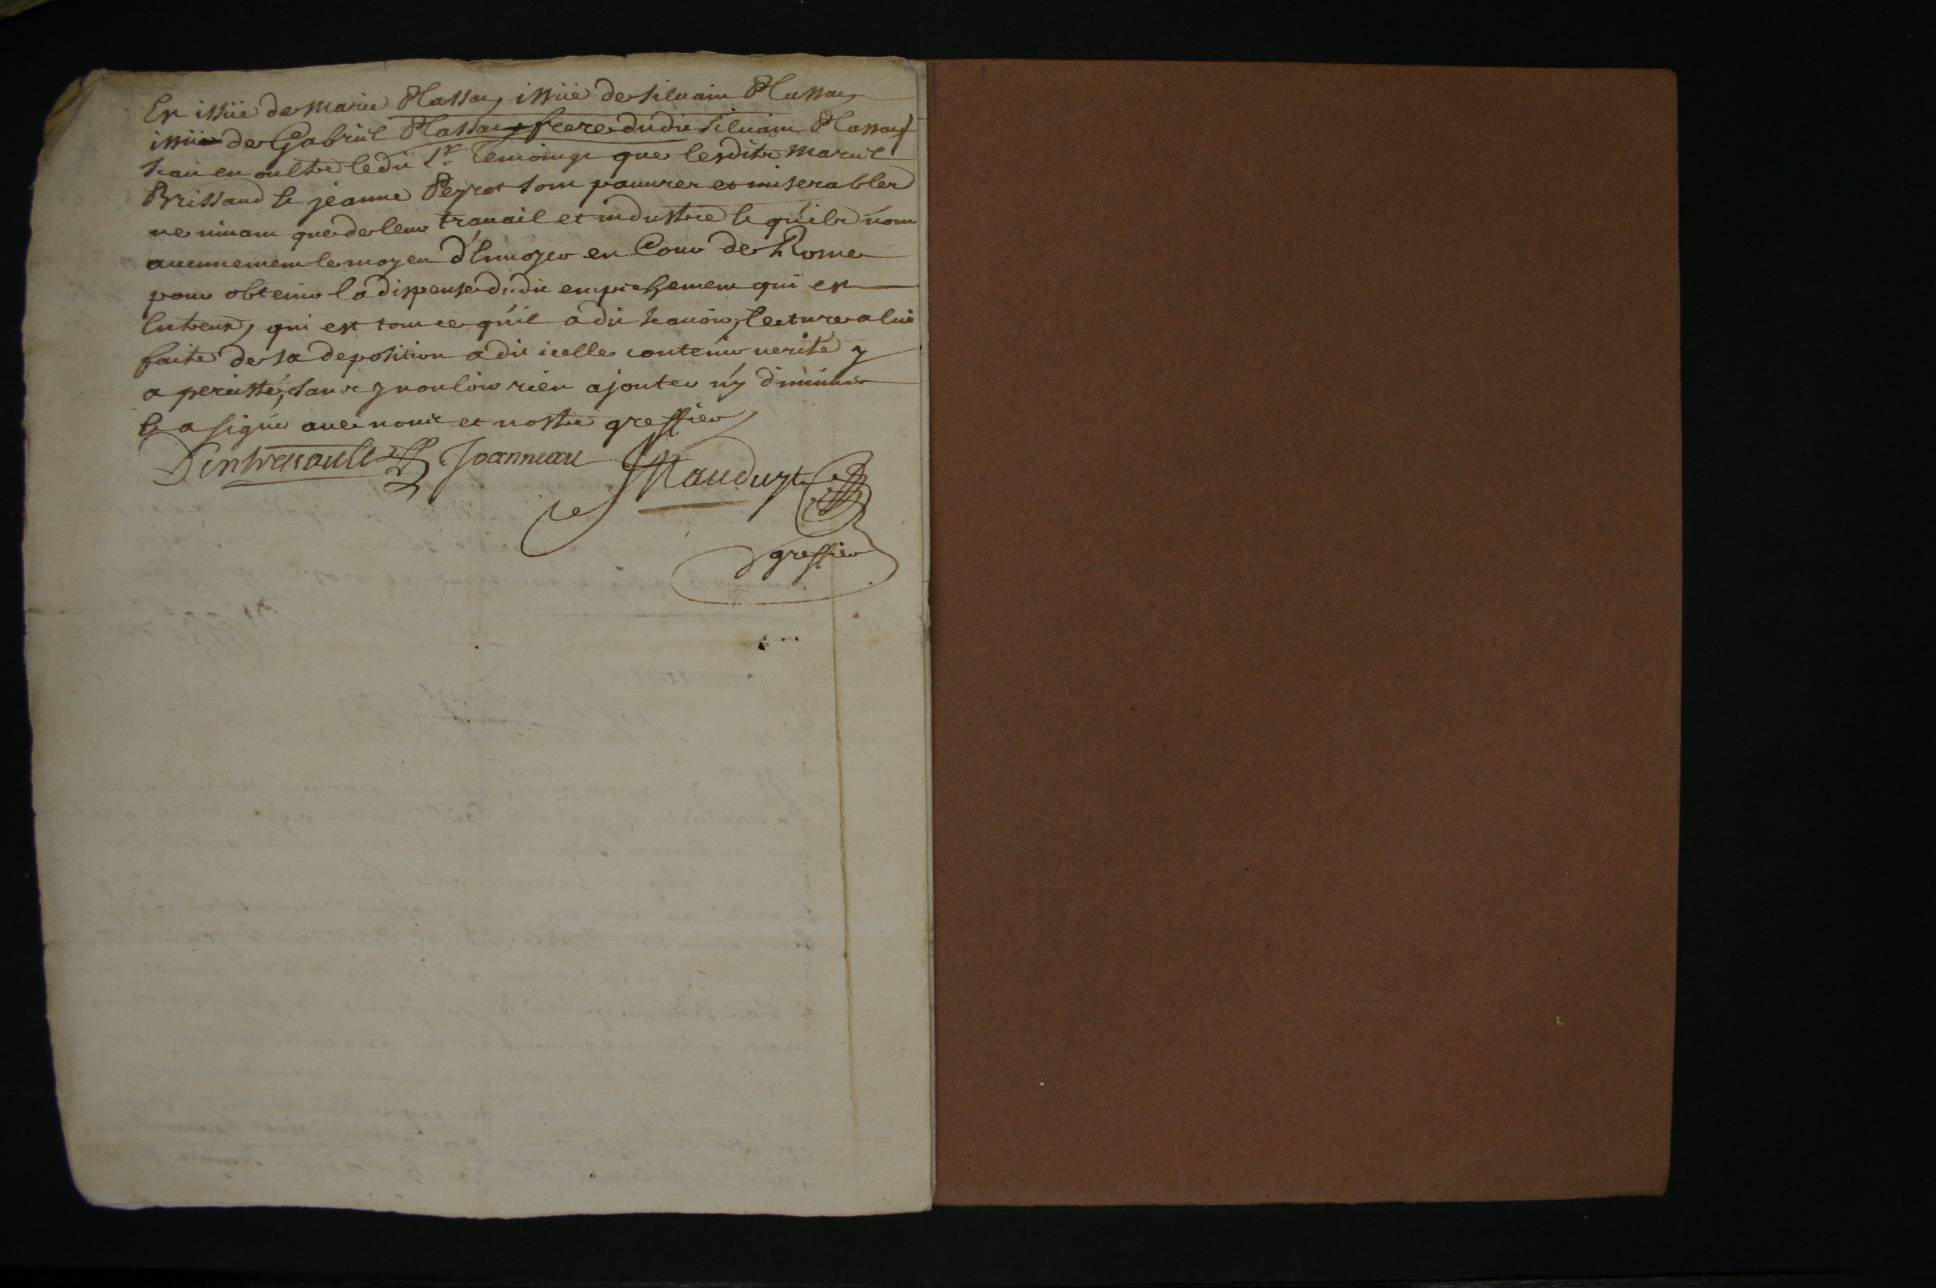 est issüe de marie Plassau, issüe de silvain Plassau,
issüe de Gabriel Plassau frere dudit silvain Plassau
scait en oultre ledit Sr temoings que lesdits marcel
Brissaud & jeanne Peyrot sont pauvres et miserables
ne vivant que de leur travail et industrie & qu'ils n'ont
aucunnement le moyen d'Envoyer en Cour de Rome
pour obtenir la dispense dudit empeschement qui est
Entreux, qui est tout ce qu'il a dit scavoir, lecture a lui
faite de sa deposition a dit icelle contenir verité y
a percisté, sans y vouloir rien ajouter n'y diminuer
& a signé avec nous et nostre greffier,
Joanneau Mauduyt
greffier